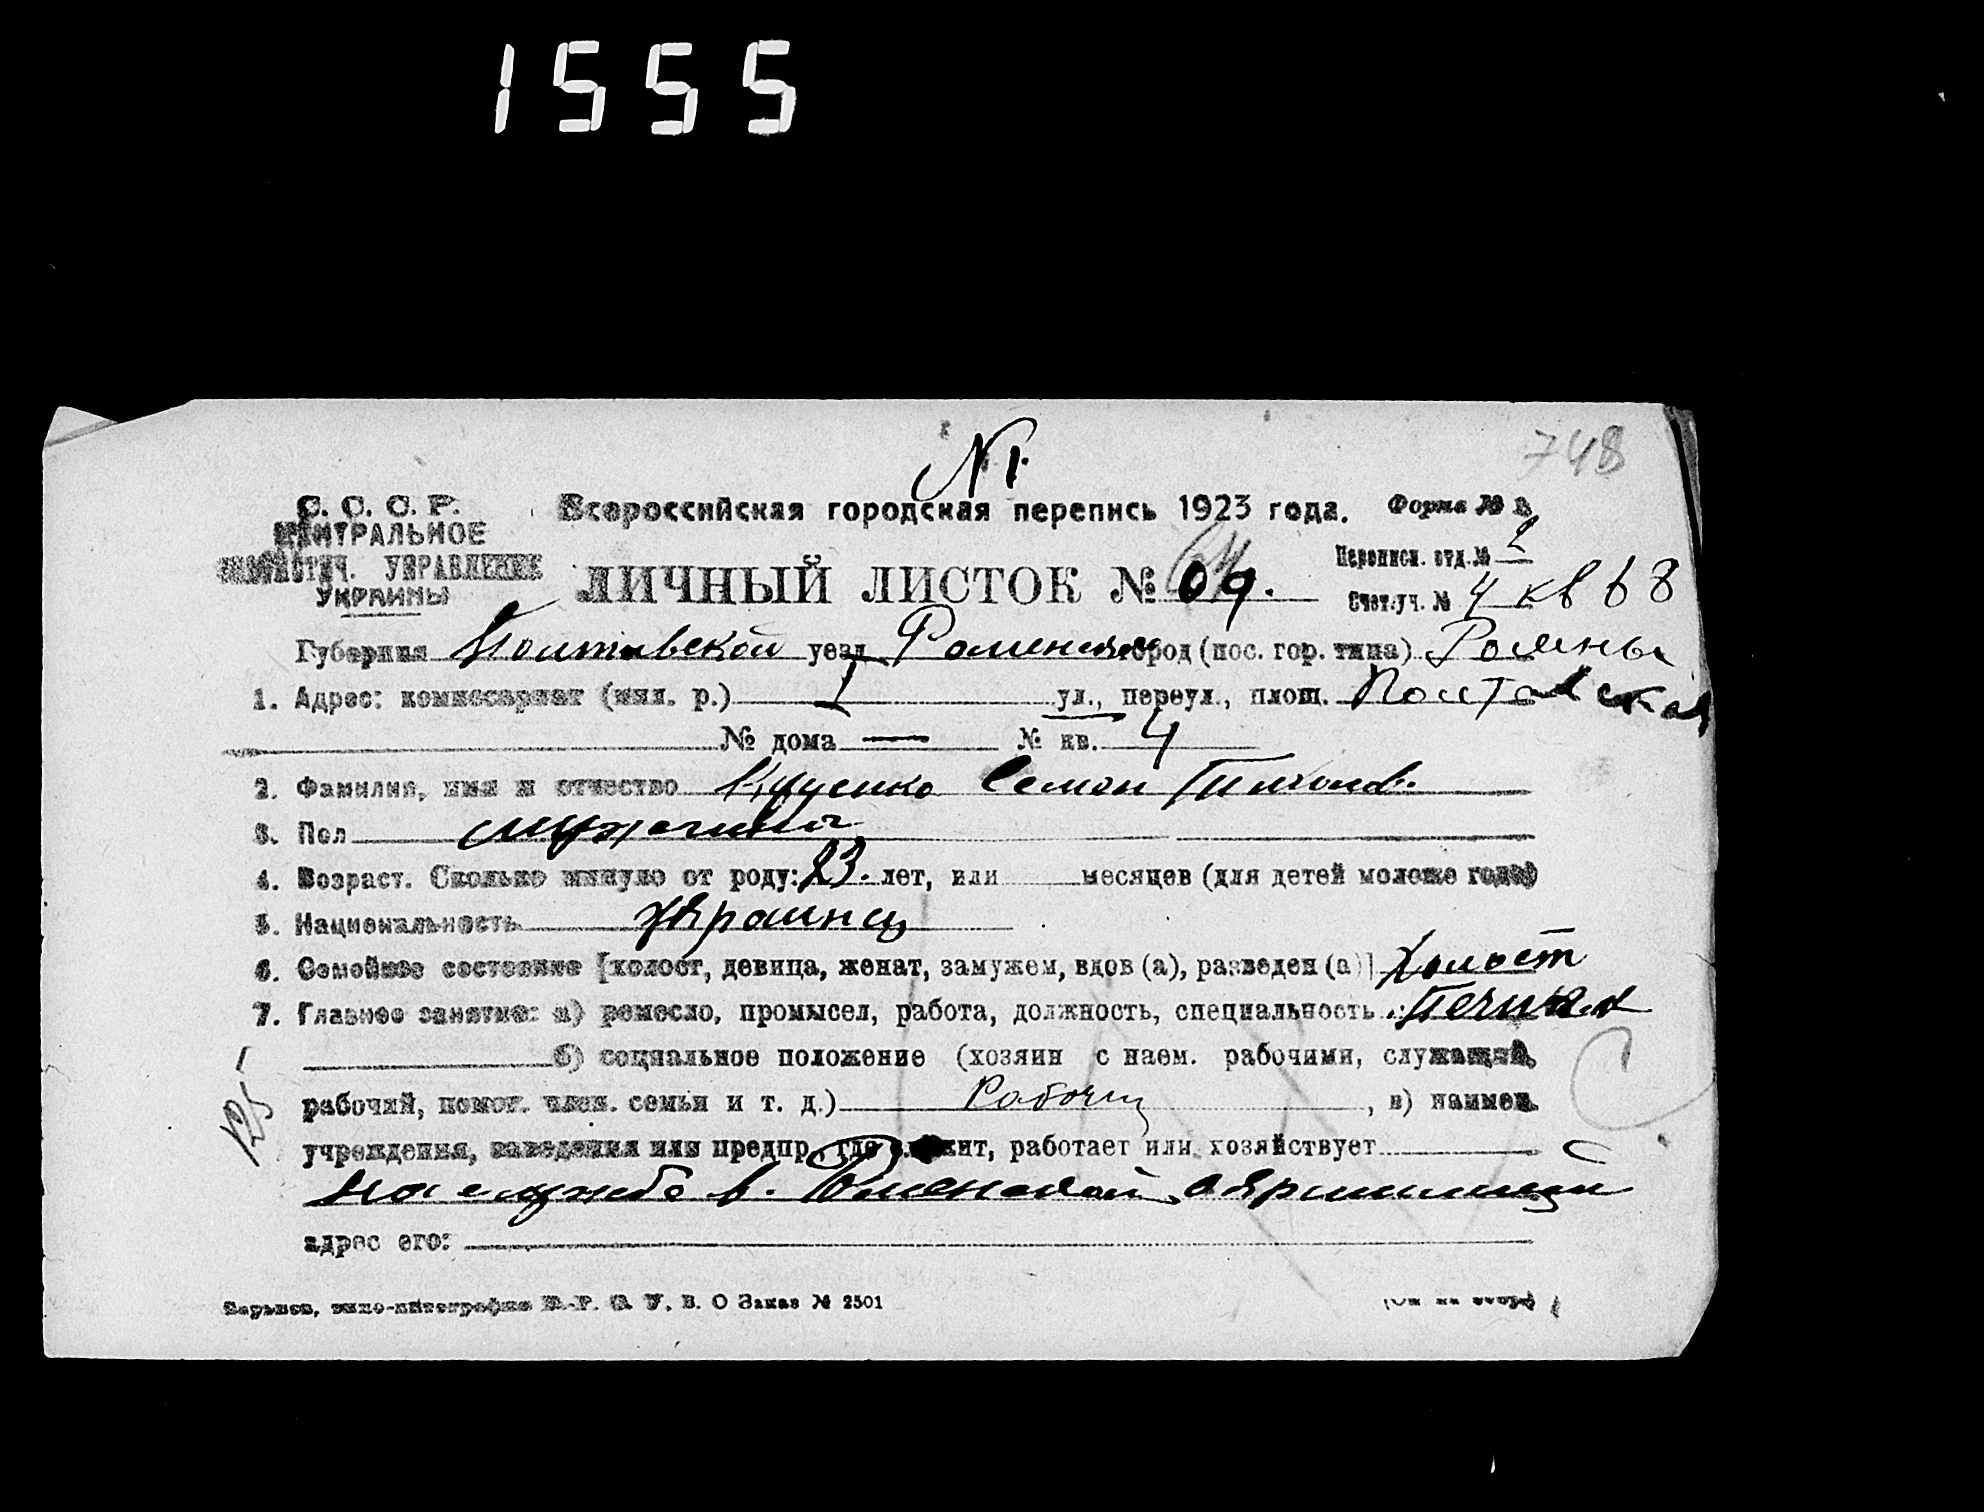 1555
№ 1.
748
С. С. С. Р.
ЦЕНТРАЛЬНОЕ
СТАТИСТИЧ. УПРАВЛЕНИЕ
УКРАИНЫ
Всероссийская городская перепись 1923 года.
Форма №
ЛИЧНЫЙ ЛИСТОК № 69.
Перепися. отд. № 2
Счет. уч. № 4 кв 68
Губерния Полтавской уезд Роменск город (пос. гор. типа) Ромны
1. Адрес: комиссариат (мил. р.) I ул., переул., площ. Полтавская
№ дома — № кв. 4
2. Фамилия, имя и отчество Семен
3. Пол мужчина
4. Возраст. Сколько минуло от роду: 23. лет, или месяцев (для детей моложе года)
5. Национальность украинец
6. Семейное состояние [холост, девица, женат, замужем, вдов (а), разведен (а)] Холост
7. Главное занятие: а) ремесло, промысел, работа, должность, специальность
б) социальное положение (хозяин с наем. рабочими, служащий,
125
рабочий, помог. член. семьи и т. д.) Рабочий, в) наимен.
учреждения, заведения или предпр. где служит, работает или хозяйствует
На службе в. Роменской
адрес его:
Харьков, типо-литография В. О Заказ № 2501